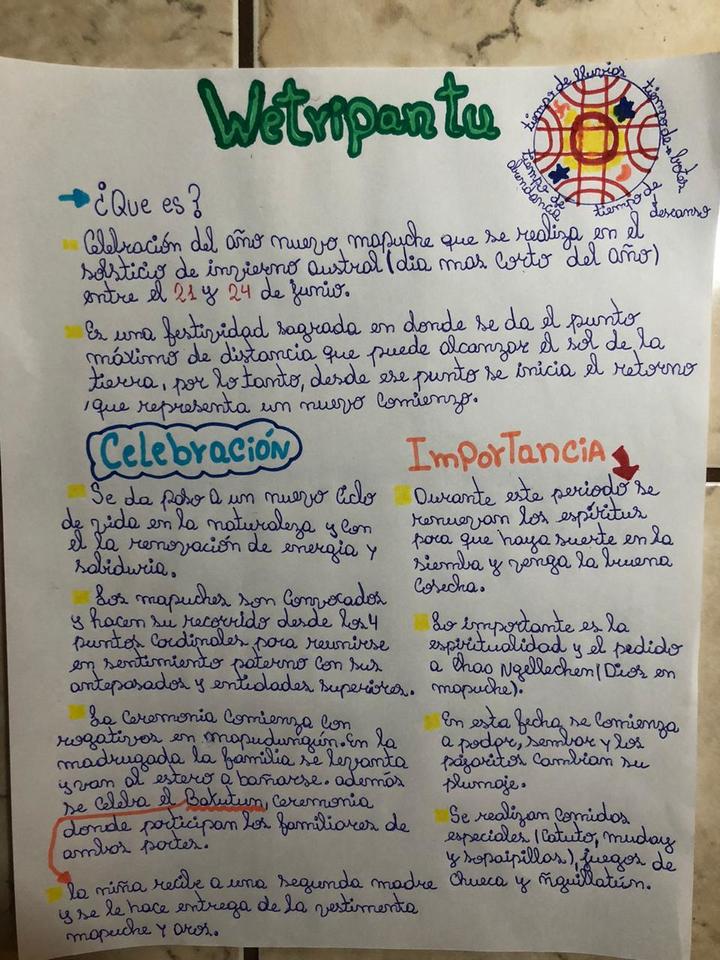 Wetripantu
tiempo de lluvias
tiempo de brotes
tiempo de descanso
tiempo de abundancia
¿Que es?
Celebración del año nuevo mapuche que se realiza en el
solsticio de invierno austral (dia mas corto del año)
entre el 21 y 24 de junio.
Es una festividad sagrada en donde se da el punto
máximo de distancia que puede alcanzar el sol de la
tierra, por lo tanto, desde ese punto se inicia el retorno
, que representa un nuevo comienzo.
Celebración
Se da paso a un nuevo ciclo
de vida en la naturaleza y con
el la renovación de energia y
sabiduria.
Los mapuches son convocados
y hacen su recorrido desde los 4
puntos cardinales para reunirse
en sentimiento paterno con sus
antepasados y entidades superiores.
La ceremonia comienza con
rogativos en mapudungún. En la
madrugada la familia se levanta
y van al estero a bañarse. además
se celeba el Bakutum, ceremonia
donde participan los familiares de
ambas partes.
la niña recibe a una segunda madre
y se le hace entrega de la vestimenta
mapuche y aros.
Importancia
Durante este periodo se
renuevan los espíritus
para que haya suerte en la
siemba y venga la buena
cosecha.
Lo importante es la
espiritualidad y el pedido
a Chao Ngellechen (Dios en
mapuche).
En esta fecha se comienza
a podar, sembar y los
pájaritos cambian su
plumaje.
Se realizan comidas
especiales (catuto, muday
y sopaipillas), juegos de
chueca y ñguillatún.